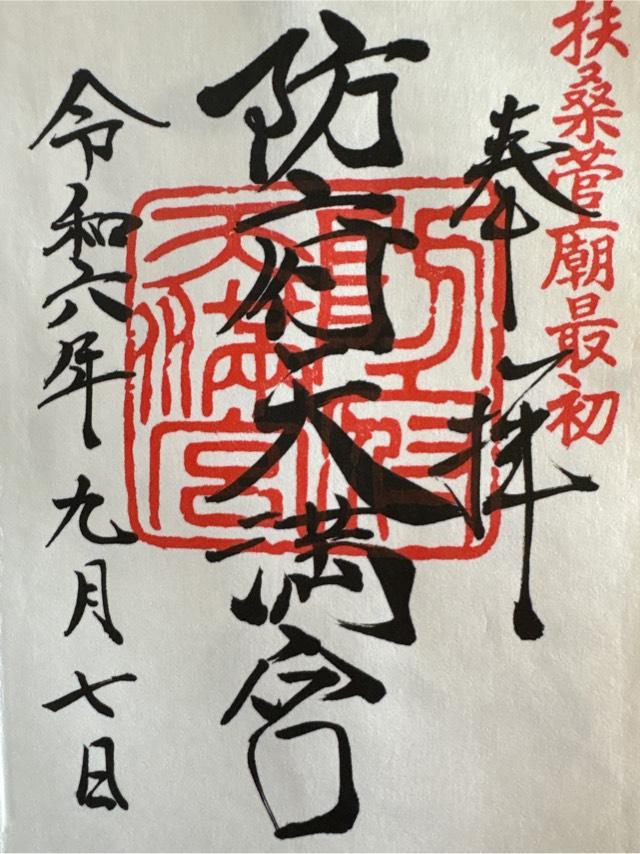 扶桑菅廟最初
奉拝
防府天満宮
防府天満宮
令和六年九月七日